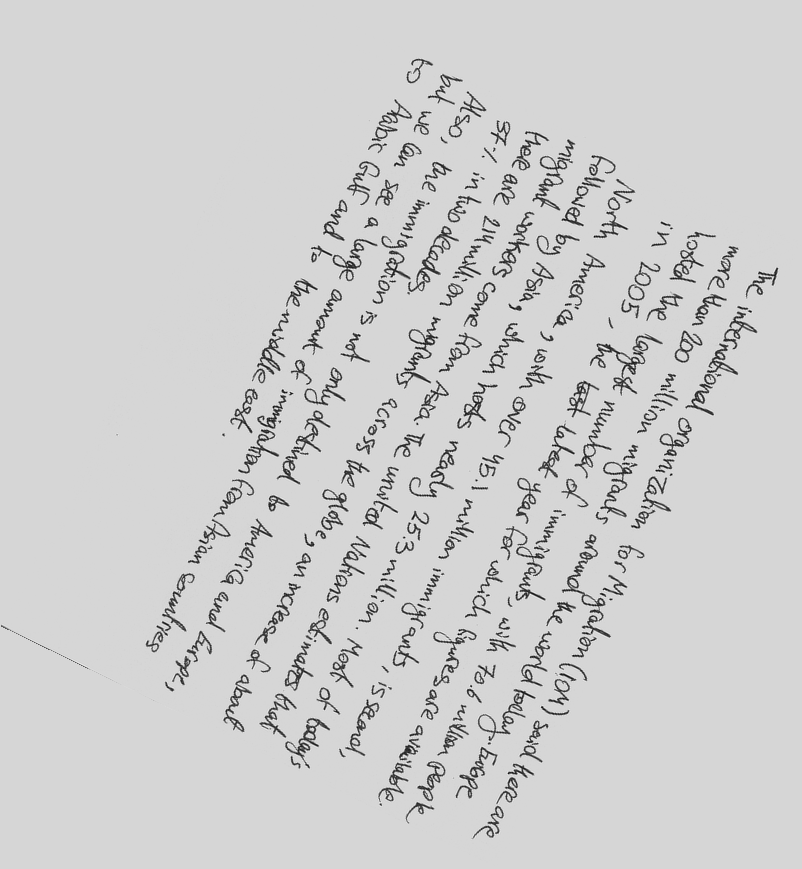 The international organization for Migration (IOM) said there are
more than 200 million migrants around the world today. Europe
hosted the largest number of immigrants, with 70.6 million people
in 2005, the latest year for which figures are available.
North America, with over 45.1 million immigrants, is second,
followed by Asia, which hosts nearly 25.3 million. Most of today's
migrant workers come from Asia. The united Nations estimates that
there are 214 million migrants across the globe, an increase of about
37% in two decades.
Also, the immigration is not only destined to America and Europe,
but we can see a large amount of immigration from Asian Countries
to Arabic Gulf and to the middle east.